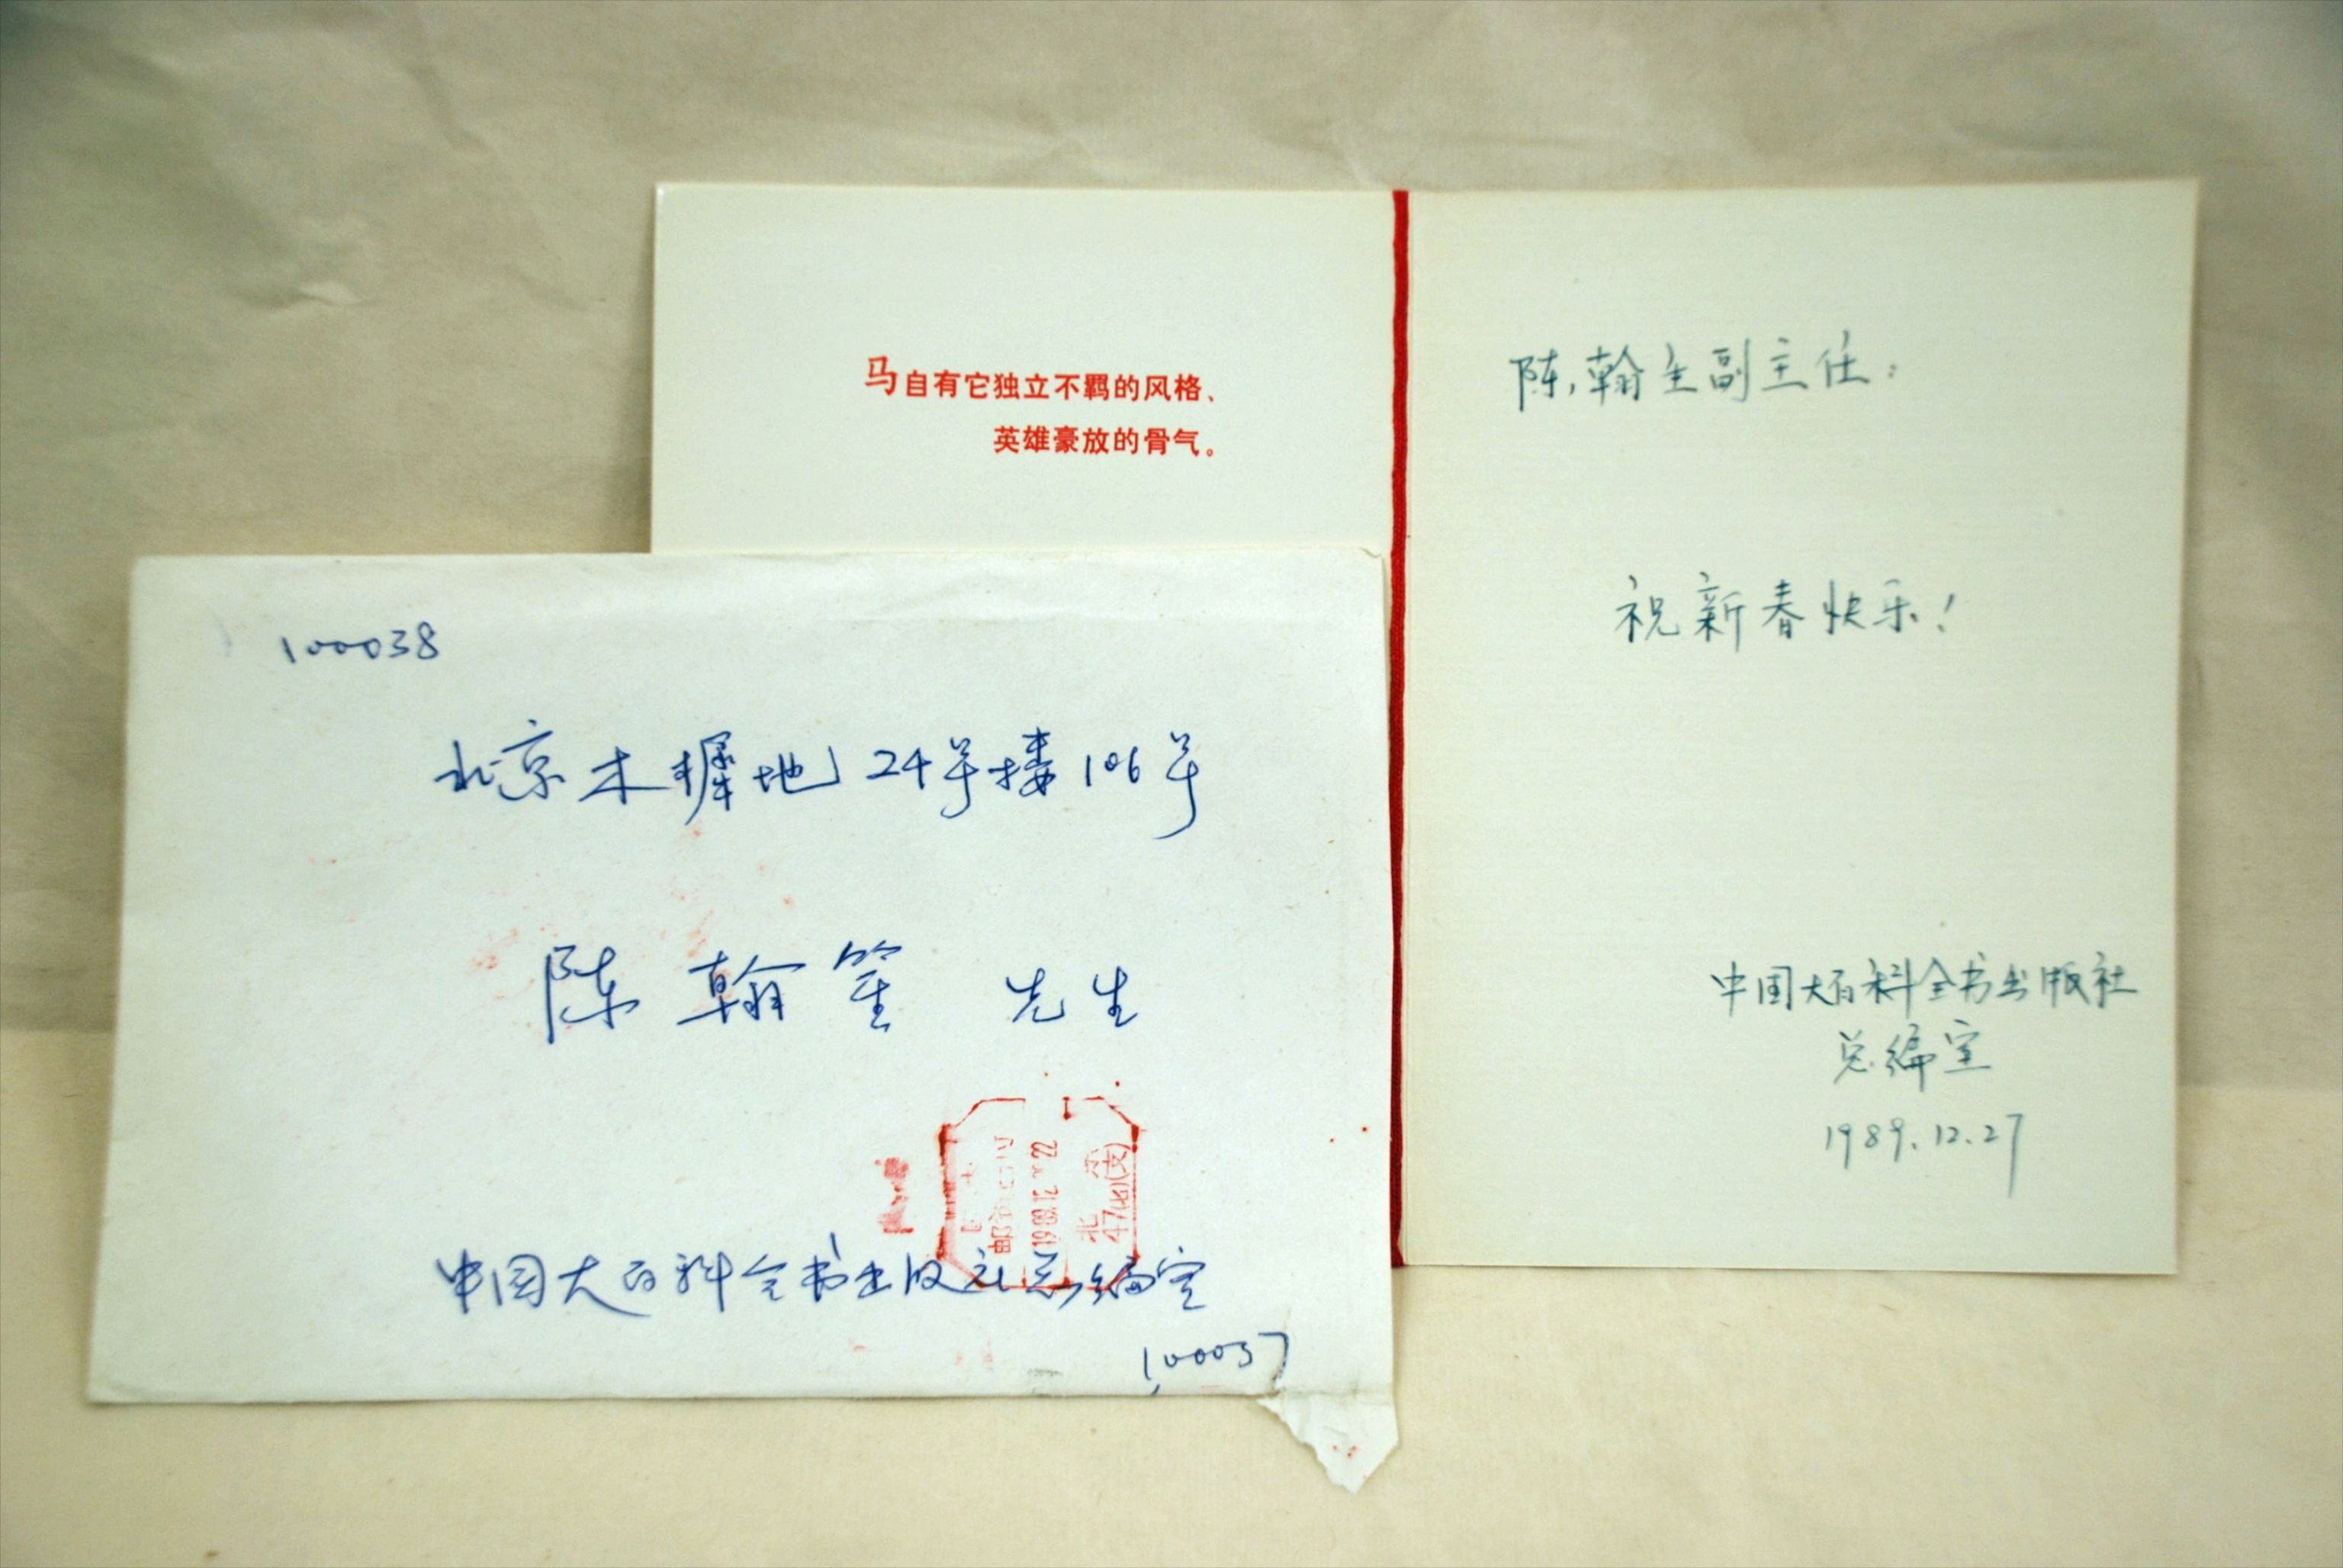 马自有它独立不羁的风格、
英雄豪放的骨气。
陈翰生副主任：
祝新春快乐！
中国大百科全书出版社
总编室
1989.12.27
100038
北京木樨地24号楼106号
陈翰笙 先生
1989.12.
北
中国大百科全书出版社总编室
100037